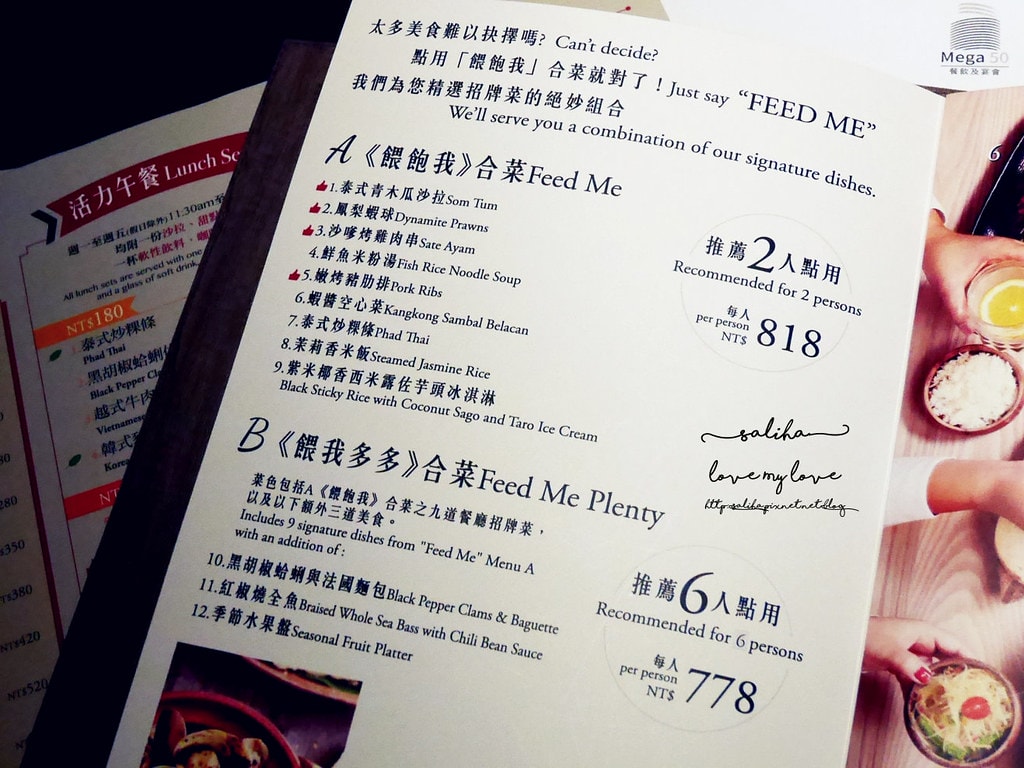 太多美食難以抉擇嗎? Can't decide?
點用「餵飽我」合菜就對了！Just say "FEED ME"
我們為您精選招牌菜的絕妙組合
We'll serve you a combination of our signature dishes.
A《餵飽我》合菜Feed Me
1.泰式青木瓜沙拉Som Tum
2.鳳梨蝦球Dynamite Prawns
3.沙嗲烤雞肉串Sate Ayam
4.鮮魚米粉湯Fish Rice Noodle Soup
5.嫩烤豬肋排Pork Ribs
6.蝦醬空心菜Kangkong Sambal Belacan
7.泰式炒粿條Phad Thai
8.茉莉香米飯Steamed Jasmine Rice
9.紫米椰香西米露佐芋頭冰淇淋
Black Sticky Rice with Coconut Sago and Taro Ice Cream
推薦2人點用
Recommended for 2 persons
每人
per person
NT$ 818
B《餵我多多》合菜Feed Me Plenty
菜色包括A《餵飽我》合菜之九道餐廳招牌菜，
以及以下額外三道美食。
Includes 9 signature dishes from "Feed Me" Menu A
with an addition of :
10.黑胡椒蛤蜊與法國麵包Black Pepper Clams & Baguette
11.紅椒燒全魚Braised Whole Sea Bass with Chili Bean Sauce
12.季節水果盤Seasonal Fruit Platter
推薦6人點用
Recommended for 6 persons
每人
per person
NT$ 778
saliha
love my love
http:saliha.pixnet.net/blog
Mega 50
餐飲及宴會
6
活力午餐 Lunch Se
週一至週五(假日除外)11.30am至
均附一份沙拉、甜點
一杯軟性飲料、咖
All lunch sets are served with one
and a glass of soft drink,
NT$180
泰式炒粿條
Phad Thai
黑胡椒蛤蜊
Black Pepper Clam
越式牛肉
Vietnamese
韓式
Korea
NT
280
NT$350
NT$420
NT$520